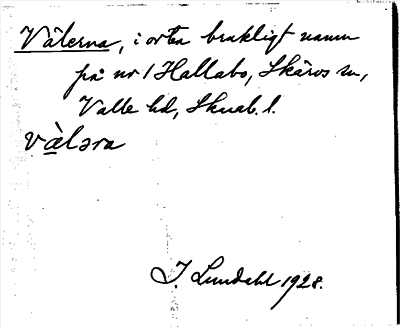 Välerna, i orten brukligt namn
på nr 1 Hallabo, Skärvs sn,
Valle hd, Skarab. l.
vàləra
I. Lundahl 1928.